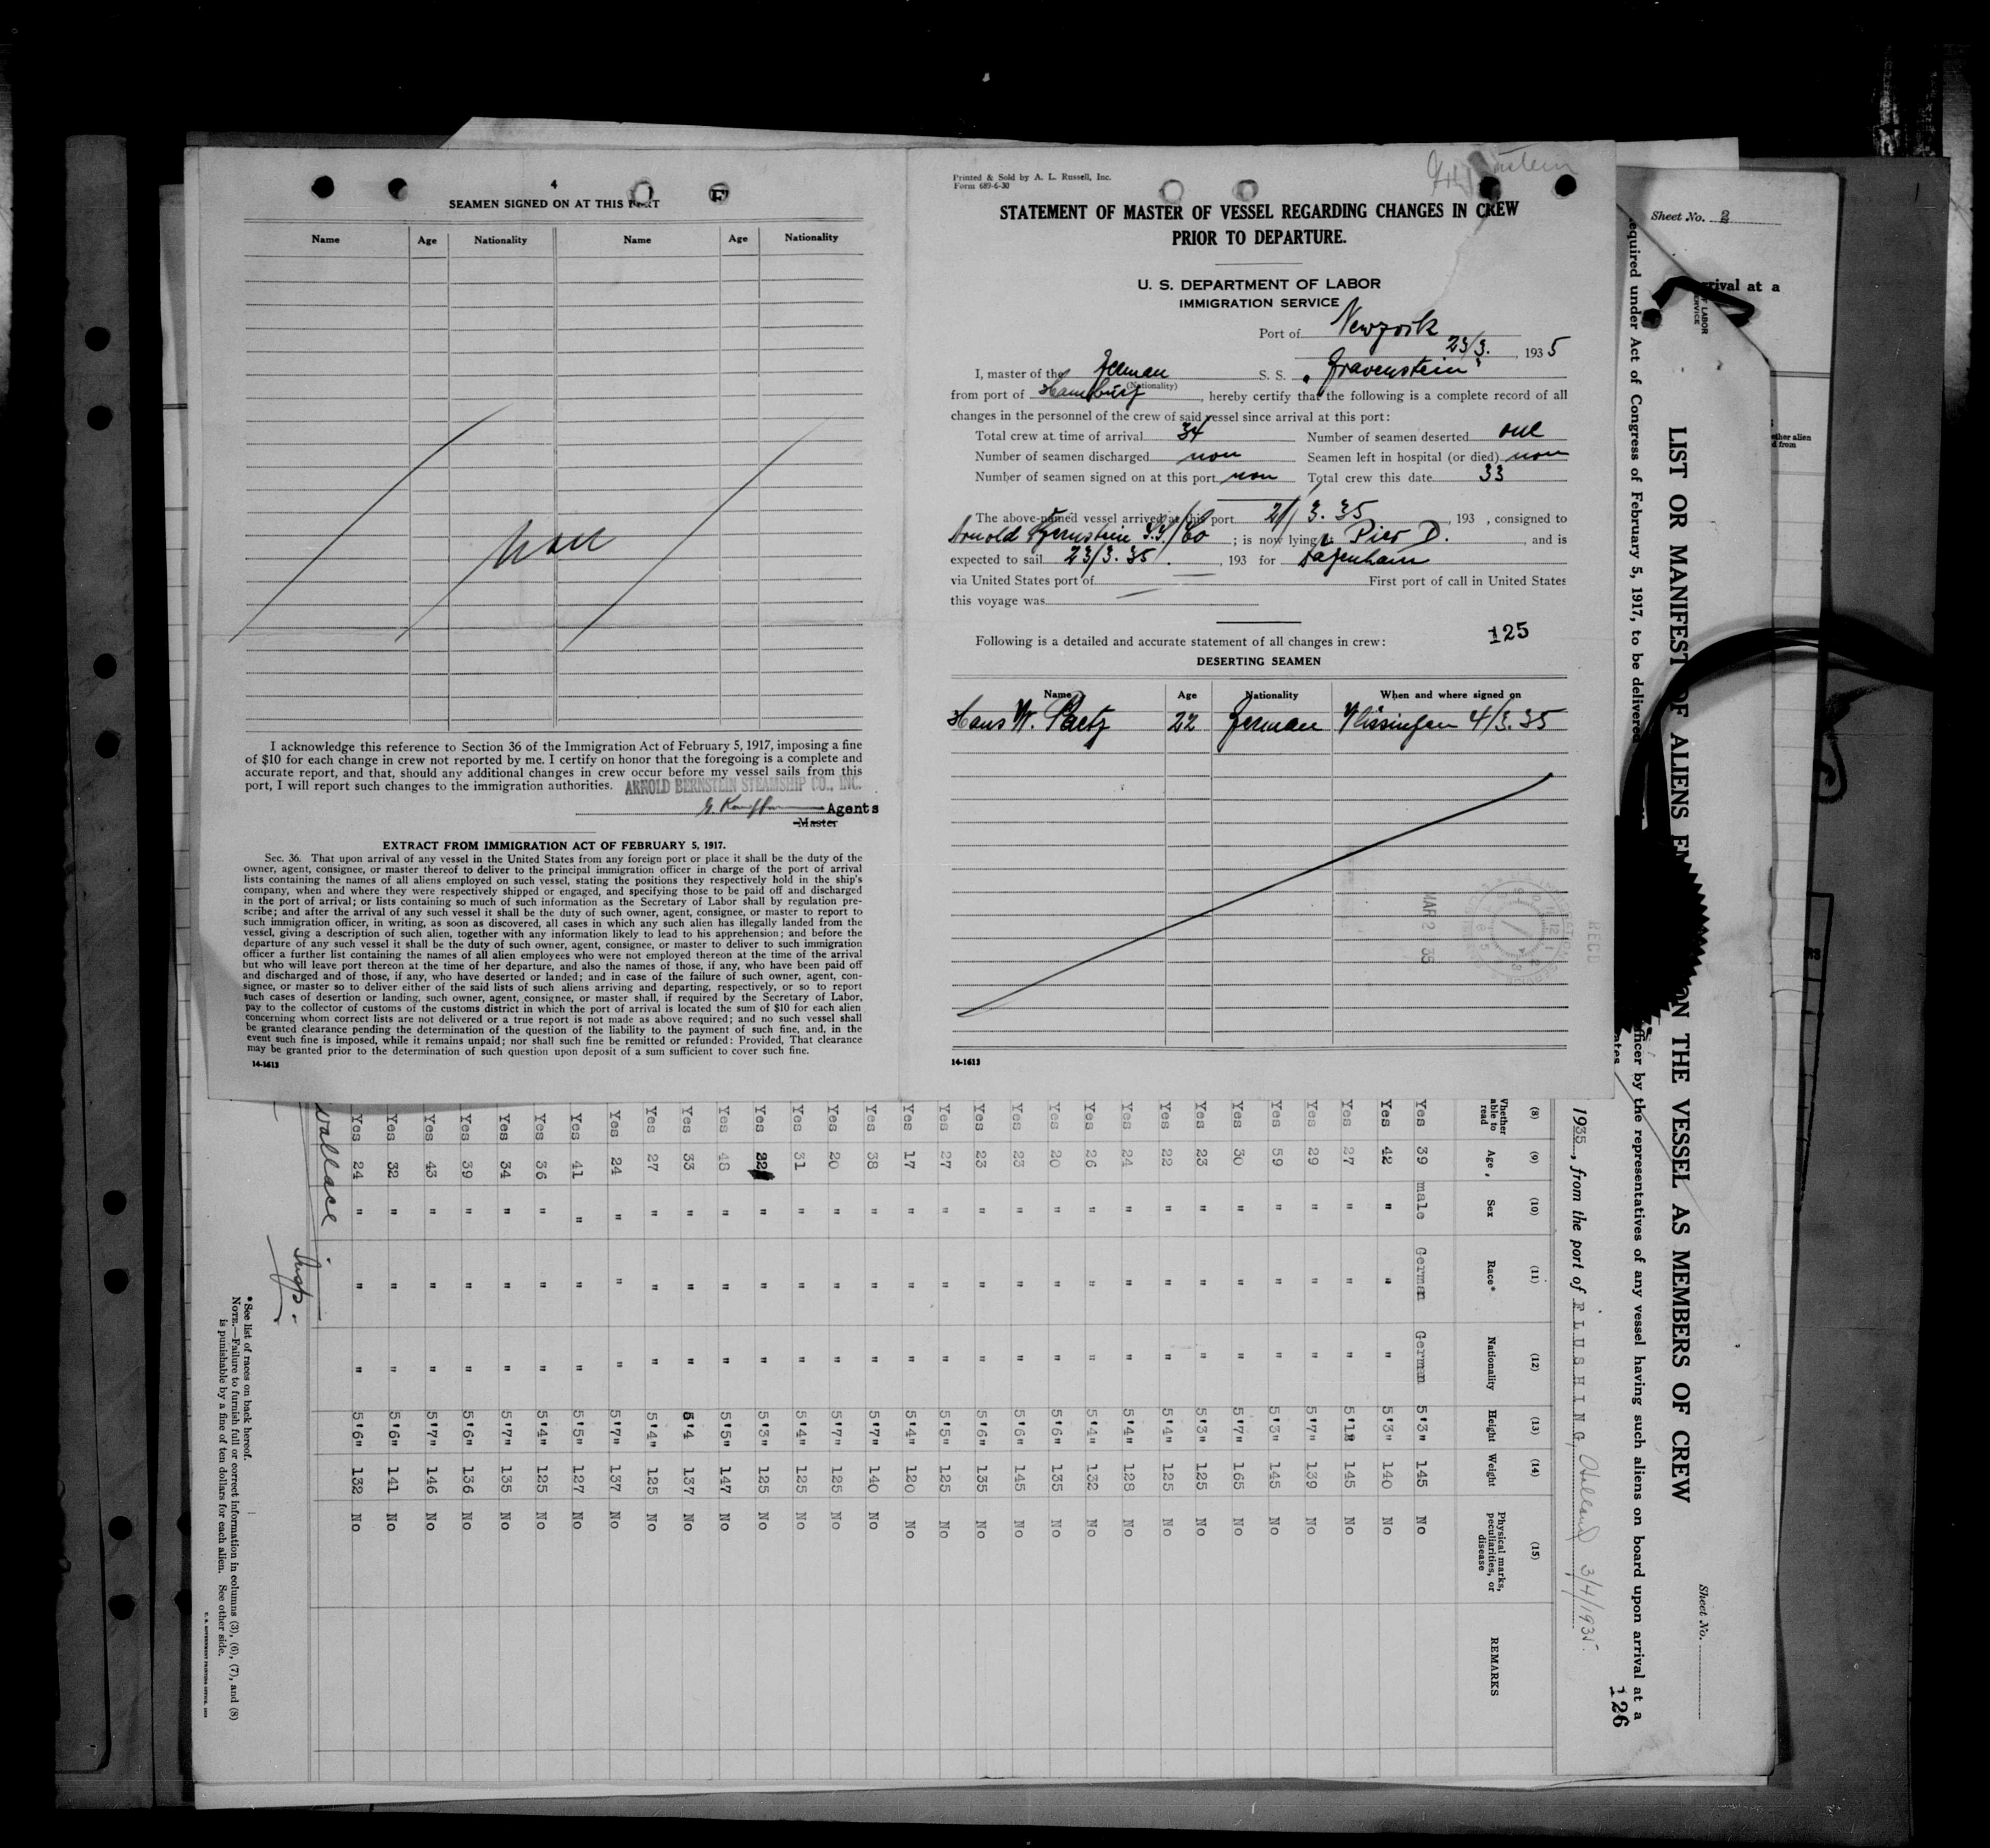 4
SEAMEN SIGNED ON AT THIS PORT
F
Name Age Nationality Name Age Nationality
I acknowledge this reference to Section 36 of the Immigration Act of February 5, 1917, imposing a fine
of $10 for each change in crew not reported by me. I certify on honor that the foregoing is a complete and
accurate report, and that, should any additional changes in crew occur before my vessel sails from this
port, I will report such changes to the immigration authorities. ARNOLD BERNSTEIN STEAMSHIP CO., INC.
Agents
Master
EXTRACT FROM IMMIGRATION ACT OF FEBRUARY 5, 1917.
Sec. 36. That upon arrival of any vessel in the United States from any foreign port or place it shall be the duty of the
owner, agent, consignee, or master thereof to deliver to the principal immigration officer in charge of the port of arrival
lists containing the names of all aliens employed on such vessel, stating the positions they respectively hold in the ship's
company, when and where they were respectively shipped or engaged, and specifying those to be paid off and discharged
in the port of arrival; or lists containing so much of such information as the Secretary of Labor shall by regulation pre-
scribe; and after the arrival of any such vessel it shall be the duty of such owner, agent, consignee, or master to report to
such immigration officer, in writing, as soon as discovered, all cases in which any such alien has illegally landed from the
vessel, giving a description of such alien, together with any information likely to lead to his apprehension; and before the
departure of any such vessel it shall be the duty of such owner, agent, consignee, or master to deliver to such immigration
officer a further list containing the names of all alien employees who were not employed thereon at the time of the arrival
but who will leave port thereon at the time of her departure, and also the names of those, if any, who have been paid off
and discharged and of those, if any, who have deserted or landed; and in case of the failure of such owner, agent, con-
signee, or master so to deliver either of the said lists of such aliens arriving and departing, respectively, or so to report
such cases of desertion or landing, such owner, agent, consignee, or master shall, if required by the Secretary of Labor,
pay to the collector of customs of the customs district in which the port of arrival is located the sum of $10 for each alien
concerning whom correct lists are not delivered or a true report is not made as above required; and no such vessel shall
be granted clearance pending the determination of the question of the liability to the payment of such fine, and, in the
event such fine is imposed, while it remains unpaid; nor shall such fine be remitted or refunded: Provided, That clearance
may be granted prior to the determination of such question upon deposit of a sum sufficient to cover such fine.
14-1613
Printed & Sold by A. L. Russell, Inc.
Form 689-6-30
STATEMENT OF MASTER OF VESSEL REGARDING CHANGES IN CREW
PRIOR TO DEPARTURE.
U. S. DEPARTMENT OF LABOR
IMMIGRATION SERVICE
Port of Newyork
23/3. , 1935
I, master of the German S. S. „Gravenstein"
(Nationality)
from port of Hamburg , hereby certify that the following is a complete record of all
changes in the personnel of the crew of said vessel since arrival at this port:
Total crew at time of arrival 34 Number of seamen deserted one
Number of seamen discharged non Seamen left in hospital (or died) non
Number of seamen signed on at this port non Total crew this date 33
The above-named vessel arrived at this port 21/3. 35 , 193 , consigned to
Arnold Bernstein S.S./Co ; is now lying Pier D. and is
expected to sail 23/3. 35. , 193 for Dagenham
via United States port of First port of call in United States
this voyage was
Following is a detailed and accurate statement of all changes in crew: 125
DESERTING SEAMEN
Name Age Nationality When and where signed on
Hans W. Paetz 22 German Vlissingen 4/3. 35
MAR 2 35
RECD
14-1613
Sheet No. 2
rrival at a
LABOR
ERVICE
other alien
d from
Sheet No.
LIST OR MANIFEST OF ALIENS EM ON THE VESSEL AS MEMBERS OF CREW
equired under Act of Congress of February 5, 1917, to be delivered fficer by the representatives of any vessel having such aliens on board upon arrival at a
ates
126
1935, from the port of FLUSHING, Holland 3/4/1935.
(8) (9) (10) (11) (12) (13) (14) (15)
Whether able to read Age Sex Race* Nationality Height Weight Physical marks, peculiarities, or disease REMARKS
Yes 39 male German German 5'3" 145 No
Yes 42 " " " 5'3" 140 No
Yes 27 " " " 145 No
Yes 29 " " " 5'7" 139 No
Yes 59 " " " 5'3" 145 No
Yes 30 " " " 5'7" 165 No
Yes 23 " " " 5'3" 125 No
Yes 22 " " " 5'4" 125 No
Yes 24 " " " 5'4" 128 No
Yes 26 " " " 5'4" 132 No
Yes 20 " " " 5'6" 135 No
Yes 23 " " " 5'6" 145 No
Yes 23 " " " 5'6" 135 No
Yes 27 " " " 5'5" 125 No
Yes 17 " " " 5'4" 120 No
Yes 38 " " " 5'7" 140 No
Yes 20 " " " 5'7" 125 No
Yes 31 " " " 5'4" 125 No
Yes 22 " " " 5'3" 125 No
Yes 48 " " " 5'5" 147 No
Yes 33 " " " 5'4 137 No
Yes 27 " " " 5'4" 125 No
Yes 24 " " " 5'7" 137 No
Yes 41 " " " 5'5" 127 No
Yes 36 " " " 5'4" 125 No
Yes 34 " " " 5'7" 135 No
Yes 39 " " " 5'6" 136 No
Yes 43 " " " 5'7" 146 No
Yes 32 " " " 5'6" 141 No
Yes 24 " " " 5'6" 132 No
wallace
Insp.
*See list of races on back hereof.
NOTE.—Failure to furnish full or correct information in columns (3), (6), (7), and (8)
is punishable by a fine of ten dollars for each alien. See other side.
U. S. GOVERNMENT PRINTING OFFICE